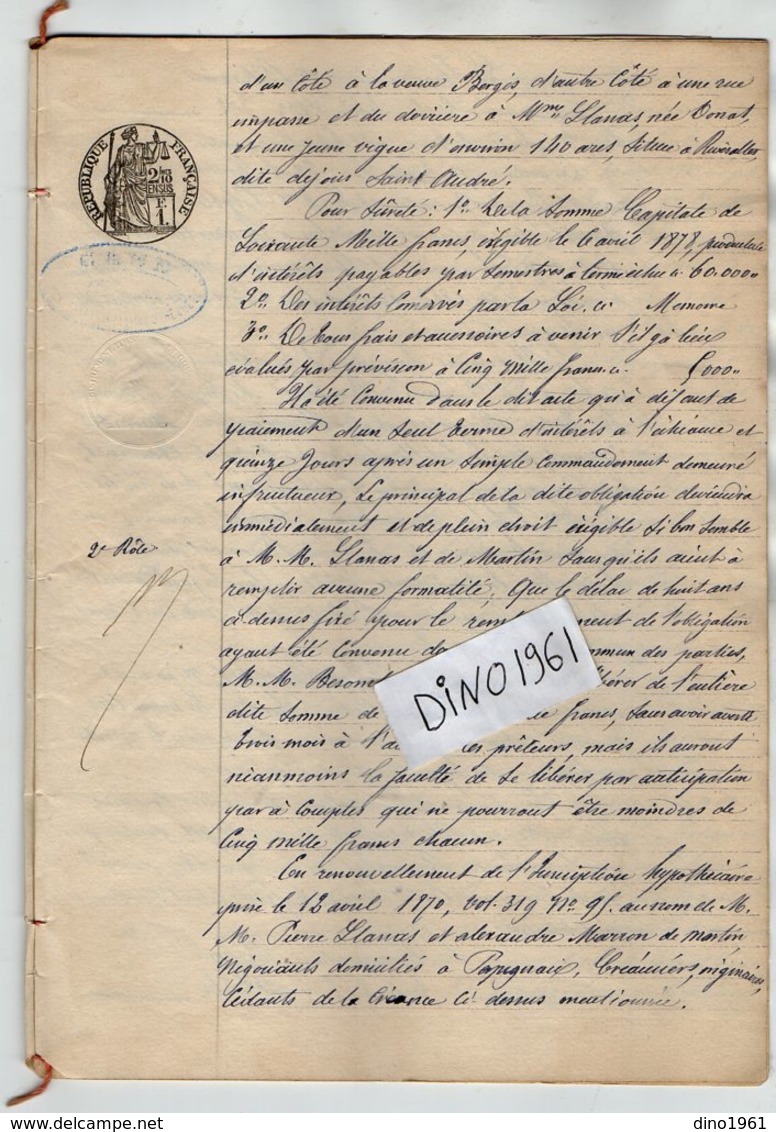 d'un côté à la veuve Borgès, d'autre côté à une rue
impasse et du derrière à Mme Llanas, née Donat,
et une jeune vigne d'environ 140 ares, située à Rivesaltes,
dite dejous Saint André.
RÉPUBLIQUE FRANÇAISE
2/10 EN SUS
F.
1.
Pour Sûreté: 1o. De la somme Capitale de
Soixante Mille francs, exigible le 6 avril 1878, productive
d'intérêts payables par semestres à terme échu ci 60.000"
2o. Des intérêts Conservés par la Loi. ci Memoire
3o. De tous frais et accessoires à venir s'il y a lieu
évalués par prévision à Cinq Mille francs. ci. 5,000"
Il a été Convenu dans le dit acte qu'à défaut de
paiement d'un seul terme d'intérêts à l'échéance et
quinze jours après un simple commandement demeuré
infructueux, le principal de la dite obligation deviendra
immédiatement et de plein droit exigible si bon semble
2e Rôle
à M.M. Llanas et de Martin sans qu'ils aient à
remplir aucune formalité; Que le délai de huit ans
ci dessus fixé pour le rem ement de l'obligation
ayant été convenu commun des parties,
M.M. Besom libérer de l'entière
dite somme de francs, sans avoir averti
trois mois à l'a prêteurs, mais ils auront
DiNO1961
néanmoins la faculté de se libérer par anticipation
par à Comptes qui ne pourront être moindres de
Cinq mille francs chacun.
En renouvellement de l'Inscription hypothécaire
prise le 12 avril 1870, vol. 319 No. 95. au nom de M.
M. Pierre Llanas et alexandre Marron de Martin
Négociants domiciliés à Perpignan, Créanciers, originaires,
Cédants de la Créance ci dessus mentionnée.
dino1961